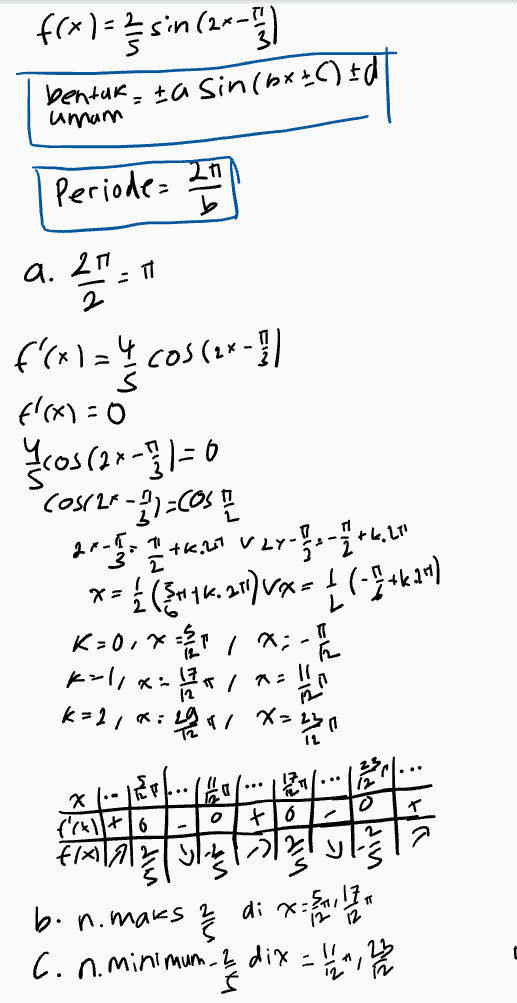 f(x) = 2/5 sin (2x - π/3)
bentuk umum = ±a sin (bx ± c) ± d
Periode = 2π/b
a. 2π/2 = π
f'(x) = 4/5 cos (2x - π/3)
f'(x) = 0
4/5 cos (2x - π/3) = 0
cos (2x - π/3) = cos π/2
2x - π/3 = π/2 + k.2π V 2x - π/3 = -π/2 + k.2π
x = 1/2 (5/6 π + k.2π) V x = 1/2 (-π/6 + k.2π)
K=0, x = 5/12 π / x = -π/12
k=1, x = 17/12 π / x = 11/12 π
k=2, x = 29/12 π / x = 23/12 π
x | ... | 5/12 π | ... | 11/12 π | ... | 17/12 π | ... | 23/12 π | ...
f'(x) | + | 0 | - | 0 | + | 0 | - | 0 | +
f(x) | ↗ | 2/5 | ↘ | -2/5 | ↗ | 2/5 | ↘ | -2/5 | ↗
b. n. maks 2/5 di x = 5/12 π, 17/12 π
C. n. minimum -2/5 di x = 11/12 π, 23/12